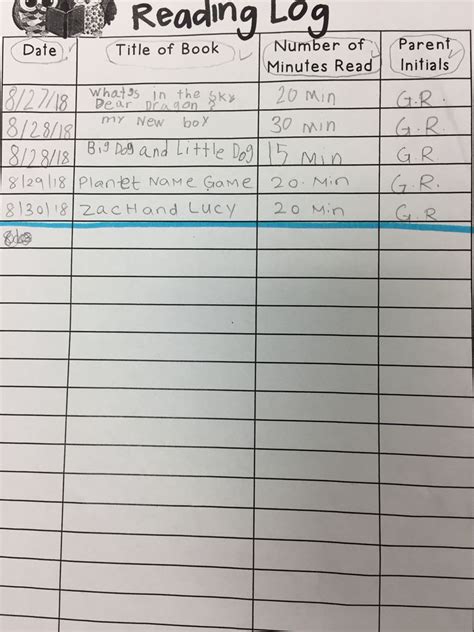 Reading Log
Date Title of Book Number of Minutes Read Parent Initials
8/27/18 What's In the Sky Dear Dragon ? 20 Min G.R.
8/28/18 my New boy 30 min G.R
8/28/18 Big Dog and Little Dog 15 Min G.R
8/29/18 Plantet Name Game 20. Min G.R.
8/30/18 Zach and Lucy 20 Min G.R